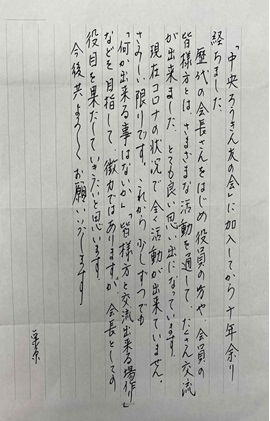 「中央ろうきん友の会」に加入してから十年余り
経ちました。
歴代の会長さんをはじめ役員の方や、会員の
皆様方とは、さまざまな活動を通して、たくさん交流
が出来ました。とても良い思い出になっています。
現在コロナの状況で全く活動が出来ていません。
さみしい限りです。これから少しずつでも
「何か出来る事はないか」皆様方と交流出来る場作り」
などを目指して、微力ではありますが、会長としての
役目を果たしていきたいと思います。
今後共よろしくお願いいたします